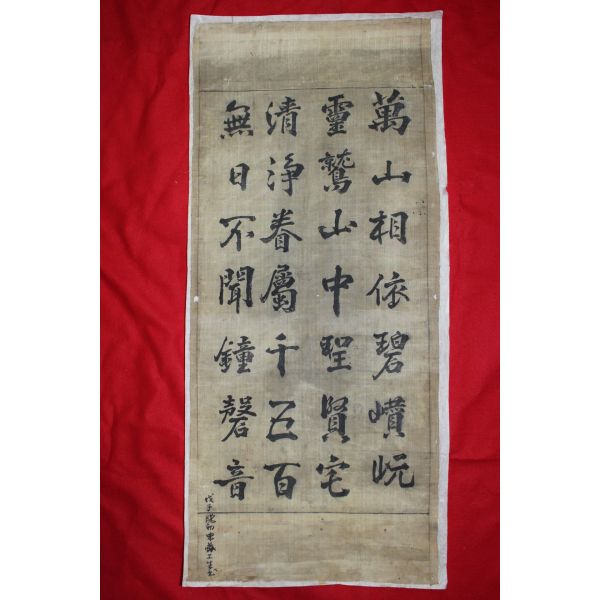 萬山相依碧巑岏
靈鷲山中聖賢宅
清淨眷屬千五百
無日不聞鐘磬音
戊子